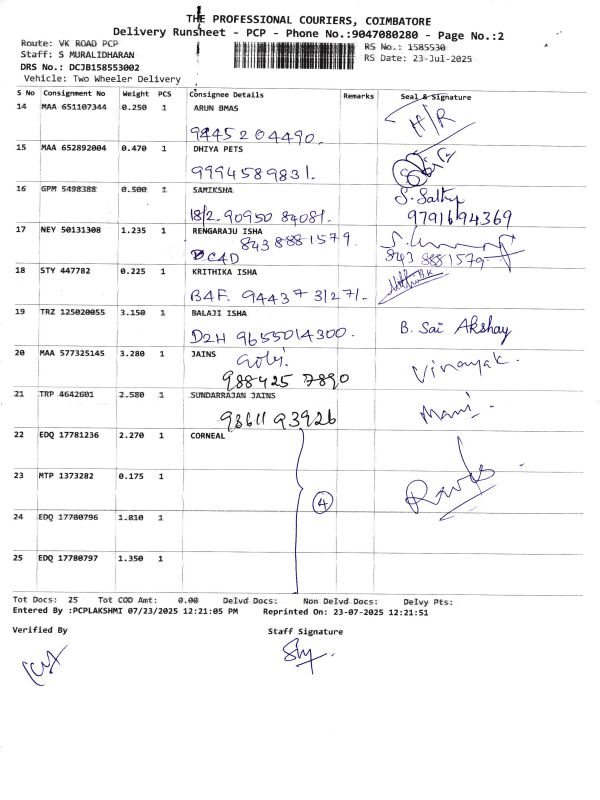 THE PROFESSIONAL COURIERS, COIMBATORE
Delivery Runsheet - PCP - Phone No.:9047080280 - Page No.:2
Route: VK ROAD PCP
Staff: S MURALIDHARAN
DRS No.: DCJB158553002
Vehicle: Two Wheeler Delivery
RS No.: 1585530
RS Date: 23-Jul-2025
S No Consignment No Weight PCS Consignee Details Remarks Seal & Signature
14 MAA 651107344 0.250 1 ARUN BMAS
9445204490. H/R
15 MAA 652892004 0.470 1 DHIYA PETS
9994589831.
16 GPM 5498388 0.500 1 SAMIKSHA S. Sathy
18/2. 90950 84081. 9791694369
17 NEY 50131308 1.235 1 RENGARAJU ISHA
843 888 1579.
DC4D 843 888 1579.
18 STY 447782 0.225 1 KRITHIKA ISHA
B4F. 9443731271.
19 TRZ 125020055 3.150 1 BALAJI ISHA
D2H 9655014300. B. Sai Akshay
20 MAA 577325145 3.280 1 JAINS Gobi. Vinayak.
988425 7890
21 TRP 4642601 2.580 1 SUNDARRAJAN JAINS Mani.
93611 93926
22 EDQ 17781236 2.270 1 CORNEAL
23 MTP 1373282 0.175 1
4
24 EDQ 17780796 1.810 1
25 EDQ 17780797 1.350 1
Tot Docs: 25 Tot COD Amt: 0.00 Delvd Docs: Non Delvd Docs: Delvy Pts:
Entered By :PCPLAKSHMI 07/23/2025 12:21:05 PM Reprinted On: 23-07-2025 12:21:51
Verified By Staff Signature